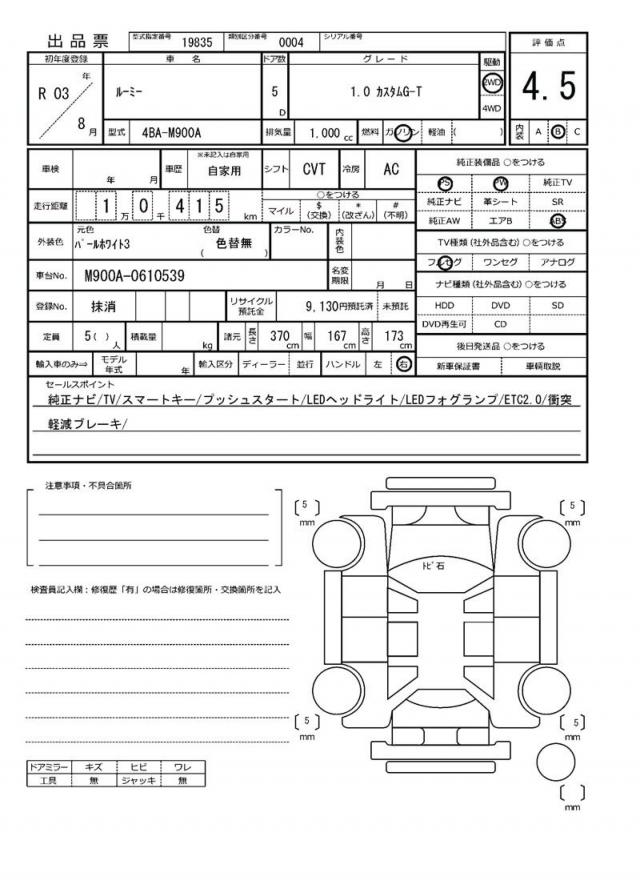 出品票 型式指定番号 19835 類別区分番号 0004 シリアル番号
初年度登録 車名 ドア数 グレード 駆動 評価点
R 03 年 8 月 ルーミー 5 D 1.0 カスタムG-T 2WD 4WD 4.5
型式 4BA-M900A 排気量 1.000 cc 燃料 ガソリン 軽油 ( ) 内装 A B C
車検 年 月 車歴 ※未記入は自家用 自家用 シフト CVT 冷房 AC 純正装備品 ○をつける
PS PW 純正TV
走行距離 1 万 0 千 4 1 5 km ○をつける 純正ナビ 革シート SR
マイル $ (交換) * (改ざん) # (不明) 純正AW エアB ABS
外装色 元色 パールホワイト3 色替 色替無 ( ) カラーNo. 内装色 TV種類 (社外品含む) ○をつける
フルセグ ワンセグ アナログ
車台No. M900A-0610539 名変期限 月 日 ナビ種類 (社外品含む) ○をつける
登録No. 抹消 リサイクル預託金 9,130円預託済 未預託 HDD DVD SD
DVD再生可 CD
定員 5( ) 人 積載量 kg 諸元 長さ 370 cm 幅 167 cm 高さ 173 cm 後日発送品 ○をつける
輸入車のみ⇒ モデル年式 年 輸入区分 ディーラー 並行 ハンドル 左 右 新車保証書 車輌取説
セールスポイント
純正ナビ/TV/スマートキー/プッシュスタート/LEDヘッドライト/LEDフォグランプ/ETC2.0/衝突
軽減ブレーキ/
注意事項・不具合箇所
[ 5 ] mm [ 5 ] mm
トビ石
検査員記入欄：修復歴「有」の場合は修復箇所・交換箇所を記入
[ 5 ] mm [ 5 ] mm
ドアミラー キズ ヒビ ワレ
工具 無 ジャッキ 無
[ ] mm